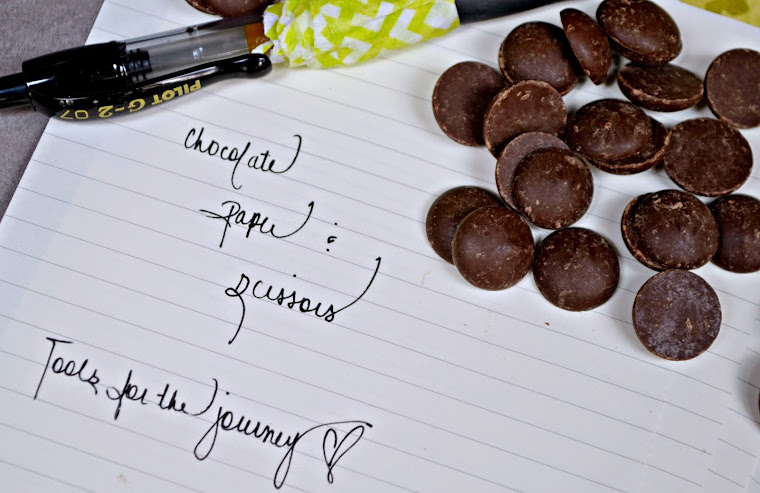 PILOT G-2 07
chocolate
paper &
scissors
Tools for the journey